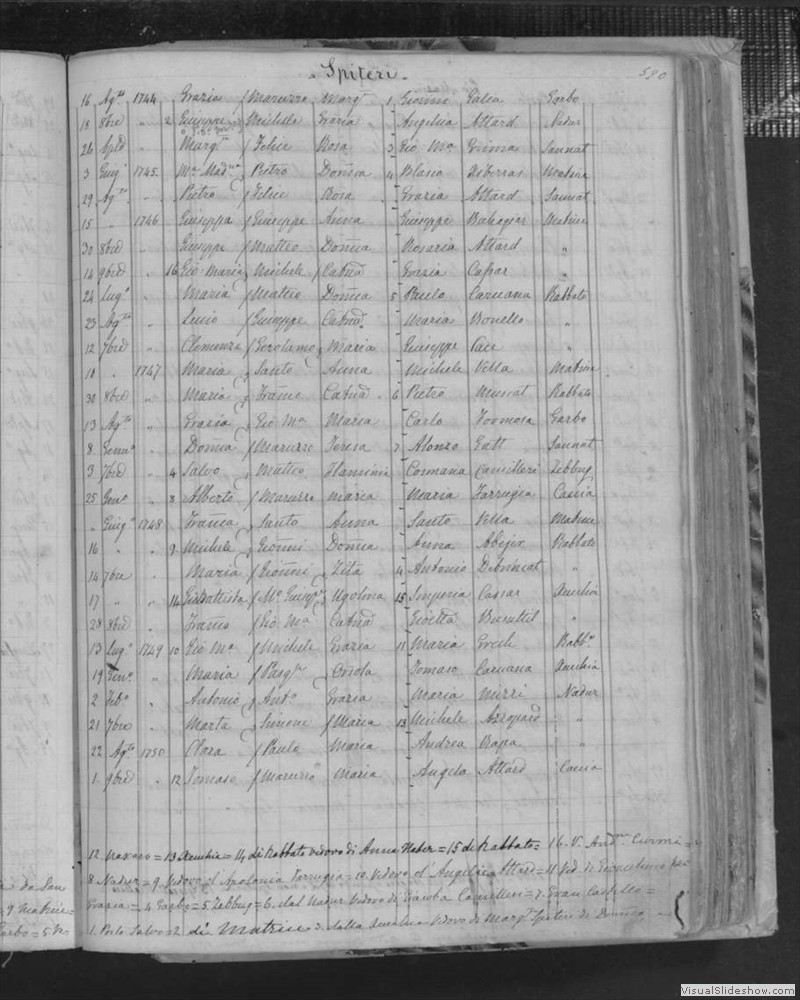 Spiteri 580
16 Ag.to 1744 Grazia Maruzzo Marg.a 1 Gionno Galea Garbo
18 8bre " 2 Giuseppe Michele Grazia Angelica Attard Nadur
26 Marg.ta Felice Rosa 3 Gio Ma Grima Sannat
3 Giug.o 1745 Pietro Domca 4 Blasio Deberras Matrice
29 Ag.to Pietro Felice Rosa Grazia Attard Sannat
15 " 1746 Giuseppa Giuseppe Anna Giuseppe Bahagiar Matrice
30 8bre Giuseppe Matteo Domca Rosaria Attard "
14 9bre 16 Gio Maria Michele Catna Grazia Caspar "
24 Lug.o Maria Matteo Domca 5 Paulo Caruana Rabbato
23 Ag.to Giuseppe Catna Maria Bonello "
12 7bre Clemenze Gerolamo Maria Giuseppe Pace "
18 " 1747 Maria Santo Anna Michele Vella Matrice
30 8bre Maria Catna 6 Pietro Muscat Rabbato
13 Ag.to Grazia Gio Ma Maria Carlo Formosa Garbo
8 Genn.o Domca Maruzzo Teresa 7 Alonzo Gatt Sannat
3 7bre " 4 Salvo Matteo Cosmana Camilleri Zebbug
25 " 8 Alberto Maruzzo Maria Maria Farrugia Caccia
" Giug.o 1748 Franca Santo Anna Santo Vella Matrice
16 " " 9 Michele Gionni Domca Anna Abejer Rabbato
14 7bre Maria Gionni Zita 4 Antonio Debrincat "
17 " " 14 GioBattista Ma Giusp.e Ugolina 15 Imperia Cassar Xeuchia
28 8bre Franco Gio Ma Catna Busuttil "
13 Lug.o 1749 10 Gio Ma Michele Grazia 11 Maria Grech Rabb.o
19 " Maria Pasq.le Tomaso Caruana Xeuchia
2 Feb.o " Antonio Ant.o Grazia Maria Mizzi Nadur
21 7bre " Marta Simone Maria 13 Michele Azzopard "
22 Ag.to 1750 Clara Paulo Maria Andrea Rapa "
1 9bre 12 Tomaso Maruzzo Maria Angela Attard Caccia
12 Naxaro = 13 Xeuchia = 14 di Rabbato vedovo di Anna = 15 di Rabbato = 16. V. And.rea Curmi =
8 Nadur = 9. Vedovo d'Apolonia Farrugia = 10. Vedovo d'Angelica Attard = 11 Ved. di
Grazia = 4 Garbo = 5 Zebbug = 6. dal Nadur Vedovo di Camilleri = 7. Castello =
1. Porto Salvo = 2 di Matrice 3. dalla Xeuchia Vedovo di Marg.ta Spiteri di Domca
da San
9 Matrice =
Garbo = 5 N
VisualSlideshow.com